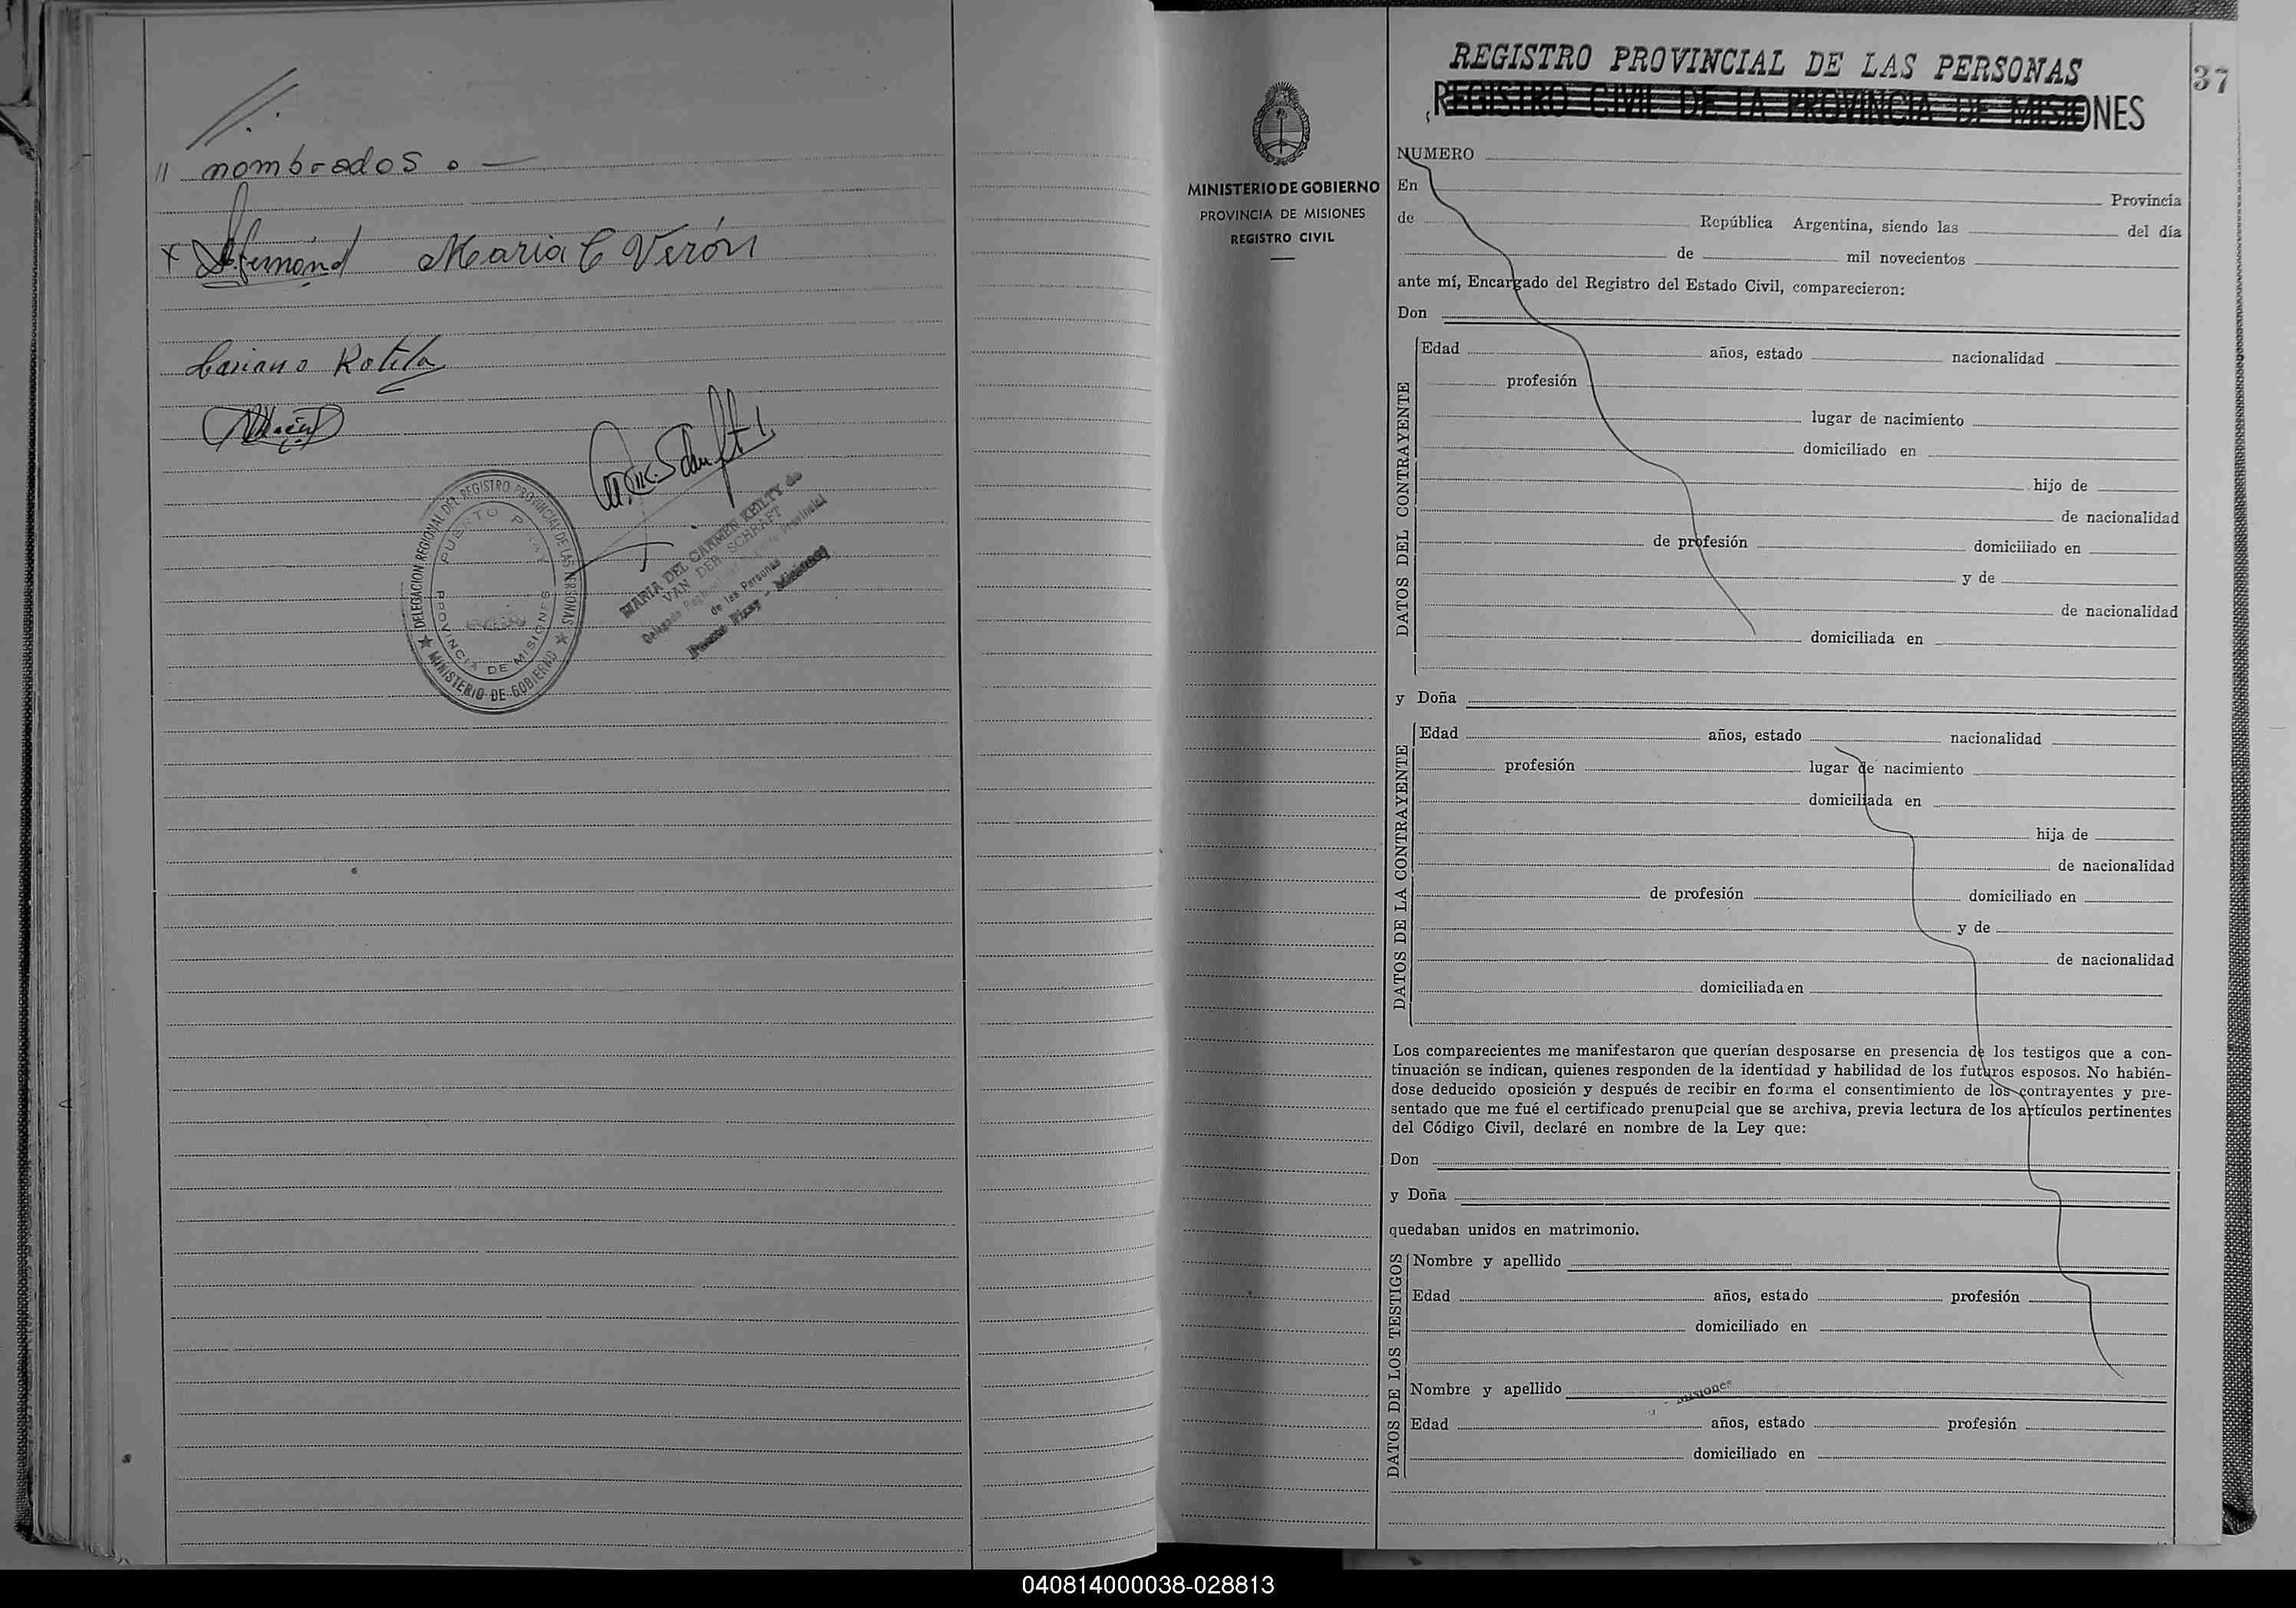 // nombrados . —
Maria C Verón
Mariano Rotela
DELEGACION REGIONAL DEL REGISTRO PROVINCIAL DE LAS PERSONAS
PUERTO PIRAY
PROVINCIA DE MISIONES
★ MINISTERIO DE GOBIERNO ★
MARIA DEL CARMEN KEILTY de
VAN DER SCHRAFT
de las Personas
Puerto Piray - Misiones
MINISTERIO DE GOBIERNO
PROVINCIA DE MISIONES
REGISTRO CIVIL
37
REGISTRO PROVINCIAL DE LAS PERSONAS
REGISTRO CIVIL DE LA PROVINCIA DE MISIONES
NUMERO
En Provincia
de República Argentina, siendo las del día
de mil novecientos
ante mí, Encargado del Registro del Estado Civil, comparecieron:
Don
DATOS DEL CONTRAYENTE
Edad años, estado nacionalidad
profesión
lugar de nacimiento
domiciliado en
hijo de
de nacionalidad
de profesión domiciliado en
y de
de nacionalidad
domiciliada en
y Doña
DATOS DE LA CONTRAYENTE
Edad años, estado nacionalidad
profesión lugar de nacimiento
domiciliada en
hija de
de nacionalidad
de profesión domiciliado en
y de
de nacionalidad
domiciliada en
Los comparecientes me manifestaron que querían desposarse en presencia de los testigos que a con-
tinuación se indican, quienes responden de la identidad y habilidad de los futuros esposos. No habién-
dose deducido oposición y después de recibir en forma el consentimiento de los contrayentes y pre-
sentado que me fué el certificado prenupcial que se archiva, previa lectura de los artículos pertinentes
del Código Civil, declaré en nombre de la Ley que:
Don
y Doña
quedaban unidos en matrimonio.
DATOS DE LOS TESTIGOS
Nombre y apellido
Edad años, estado profesión
domiciliado en
Nombre y apellido
Misiones
Edad años, estado profesión
domiciliado en
040814000038-028813